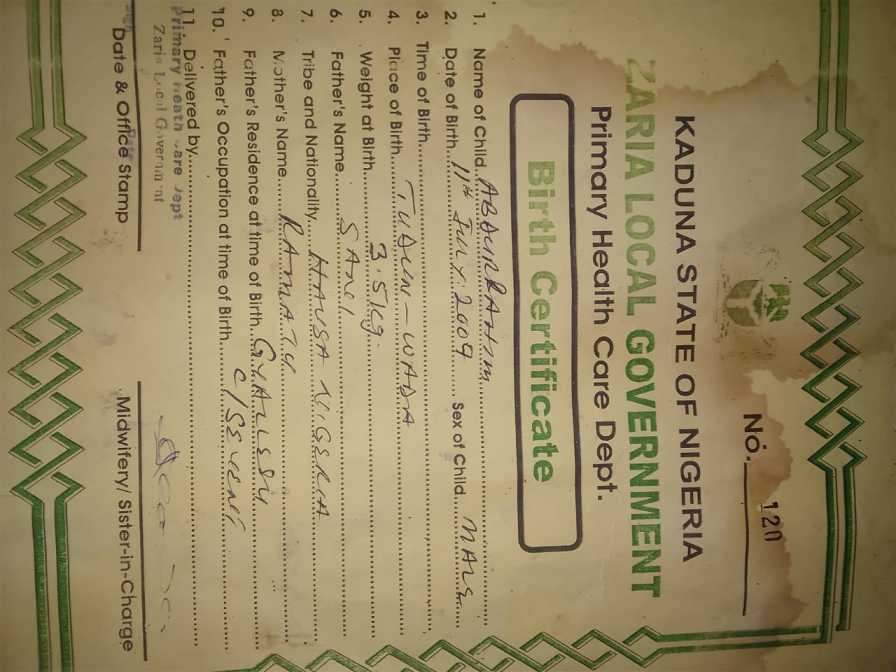 No. 120
KADUNA STATE OF NIGERIA
ZARIA LOCAL GOVERNMENT
Primary Health Care Dept.
Birth Certificate
1. Name of Child ABDURRAHIM
2. Date of Birth 11th JULY 2009 Sex of Child MALE
3. Time of Birth
4. Place of Birth TUDUN-WADA
5. Weight at Birth 3.5Kg.
6. Father's Name SANI
7. Tribe and Nationality HAUSA NIGERIA
8. Mother's Name RAMATU
9. Father's Residence at time of Birth GYALLESU
10. Father's Occupation at time of Birth C/SERVANT
11. Delivered by
Primary Heath Care Dept
Zaria Local Government
Date & Office Stamp
Midwifery/ Sister-in-Charge